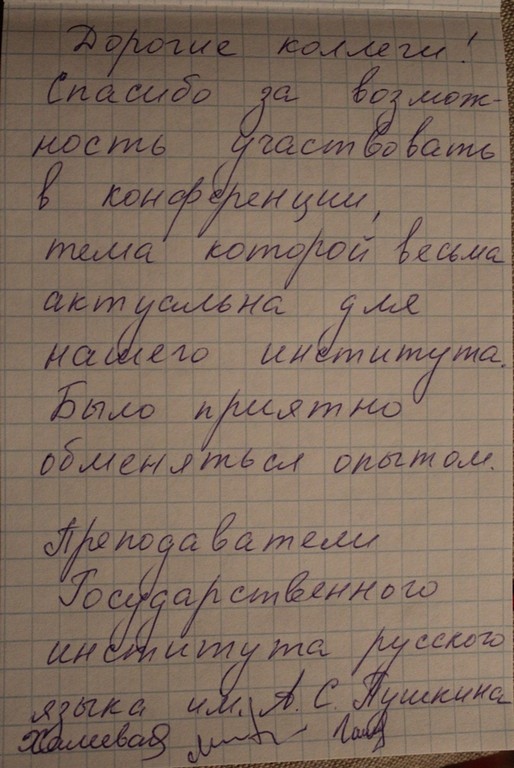 Дорогие коллеги!
Спасибо за возмож-
ность участвовать
в конференции,
тема которой весьма
актуальна для
нашего института.
Было приятно
обменяться опытом.
Преподаватели
Государственного
института русского
языка им. А. С. Пушкина